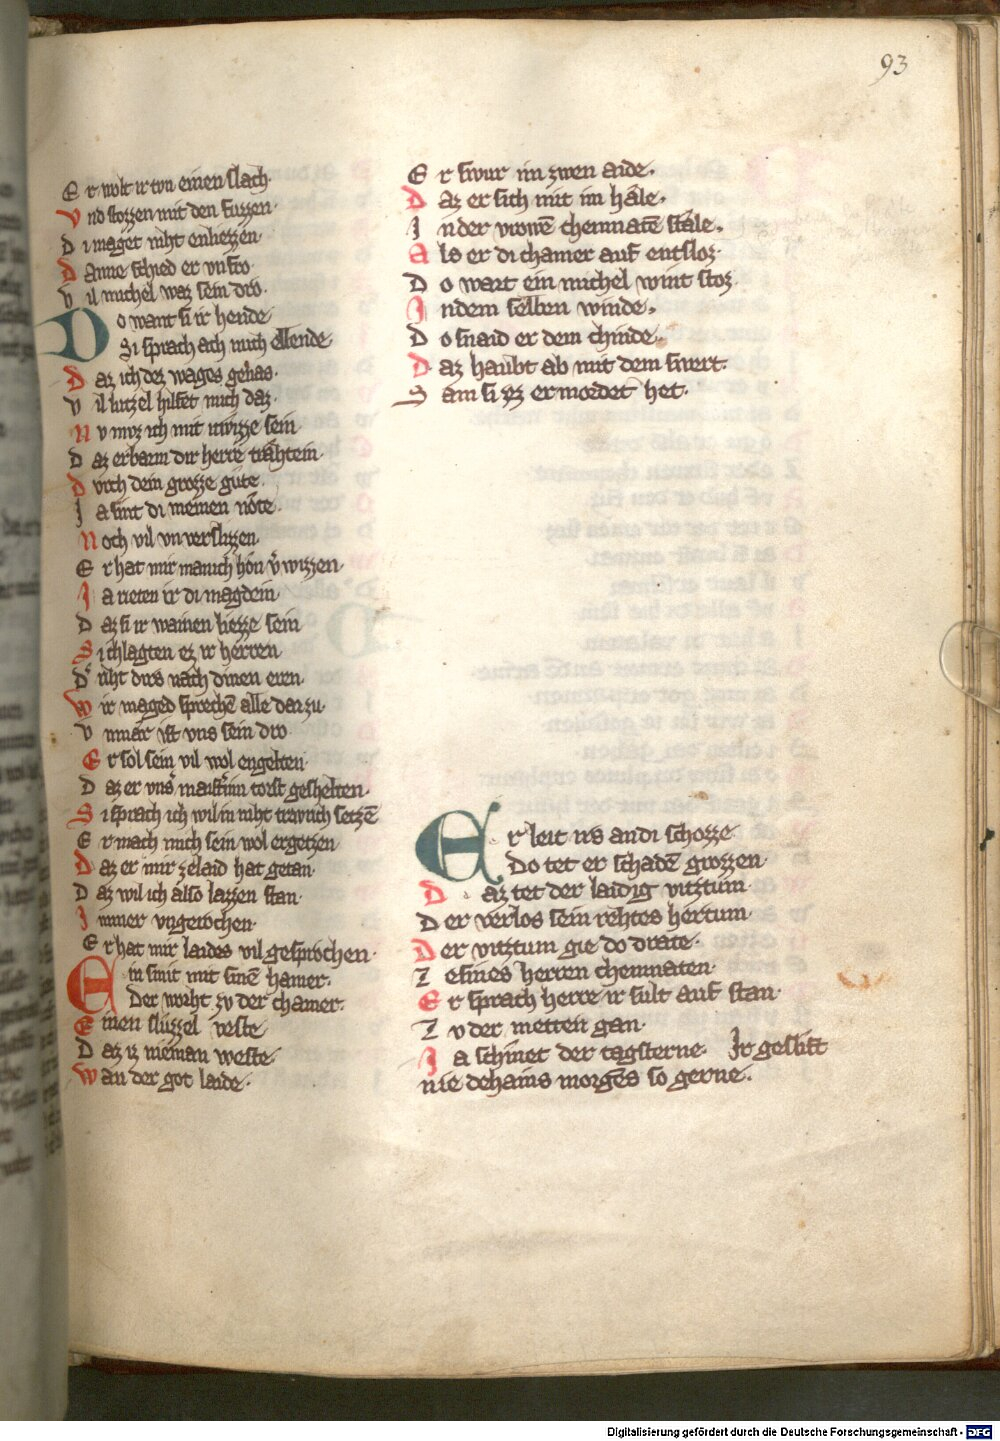 93
Er wolt ir tvn einen slach·
Vnd stozzen mit den fuzzen·
Di maget niht enhezzen·
Danne schied er vnfro·
Vil michel waz sein dro·
Do want si ir hende
Si sprach ach mich ellende·
Daz ich dez wages genas·
Vil lutzel hilfet mich daz·
Nv mvz ich mit itwizze sein
Daz erbarm dir herre trähtein·
Dvrch dein grozze güte·
Ja sint di meinen nöte·
Noch vil vnverslizzen·
Er hat mir manich hon v̂wizzen·
Ja rieten ir di magdein·
Daz si ir wainen liezze sein
Si chlagten ez ir herren
D͛ riht dirs nach dinen eren·
Wir maged sprechē alle dar zu·
Vnmär ist vns sein dro·
Er sol sein vil wol engelten·
Daz er vns͛ maist͛inn torst geschelten·
Si sprach ich wil in niht travrich setzē
Er mach mich sein wol ergetzen·
Daz er mir zelaid hat getan·
Daz wil ich also lazzen stan·
Immer vngerochen·
Er hat mir laides vil gesprochen·
Ein smit mit sinē hamer·
Der worht zv der chamer·
Einen slüzzel veste·
Daz iz nieman weste·
Wan der got laide·
Er swur im zwen aide·
Daz er sich mit im häle·
In der vrowē chemnatē stäle·
Als er di chamer auf entsloz·
Do wart ein michel wint stoz
In dem selben winde·
Do snaid er dem chinde·
Daz haubt ab mit dem swert·
Sam si ez ermordet het·
Er leit irs an di schozze
Do tet er schadē grozzen·
Daz tet der laidig vitztum·
Der verlos sein rehtes hertum·
Der vitztum gie do drate·
Ze sines herren chemnaten·
Er sprach herre ir sült auf stan·
Zv der metten gan·
Ja schinet der tagsterne· Ir geslift
nie dehains morgēs so gerne·
Digitalisierung gefördert durch die Deutsche Forschungsgemeinschaft - DFG